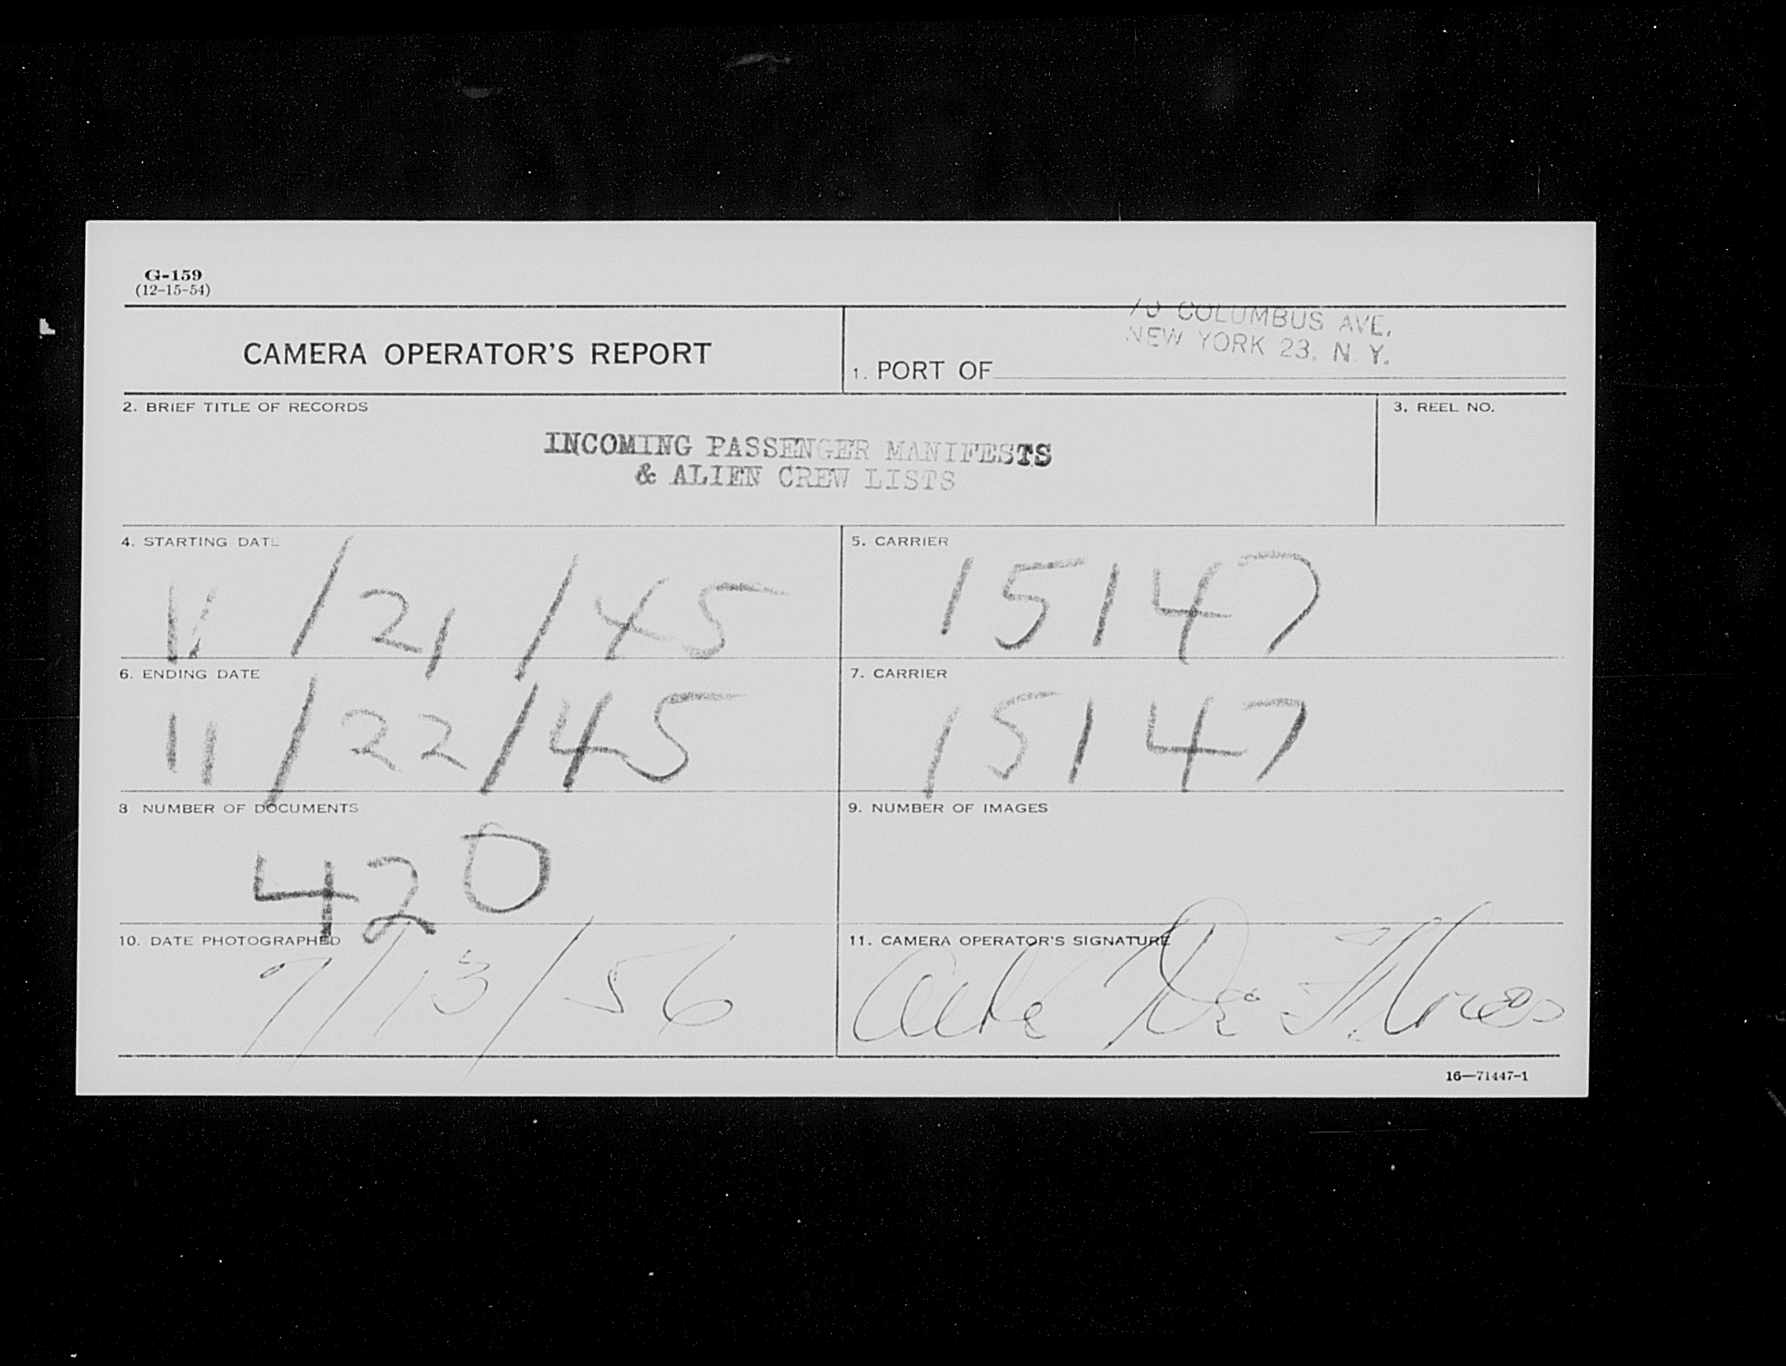 G-159
(12-15-54)
70 COLUMBUS AVE.
NEW YORK 23, N. Y.
CAMERA OPERATOR'S REPORT
1. PORT OF
2. BRIEF TITLE OF RECORDS
3. REEL NO.
INCOMING PASSENGER MANIFESTS
& ALIEN CREW LISTS
4. STARTING DATE
5. CARRIER
11/21/45
15147
6. ENDING DATE
7. CARRIER
11/22/45
15147
8 NUMBER OF DOCUMENTS
9. NUMBER OF IMAGES
420
10. DATE PHOTOGRAPHED
11. CAMERA OPERATOR'S SIGNATURE
7/13/56
De
16—71447-1